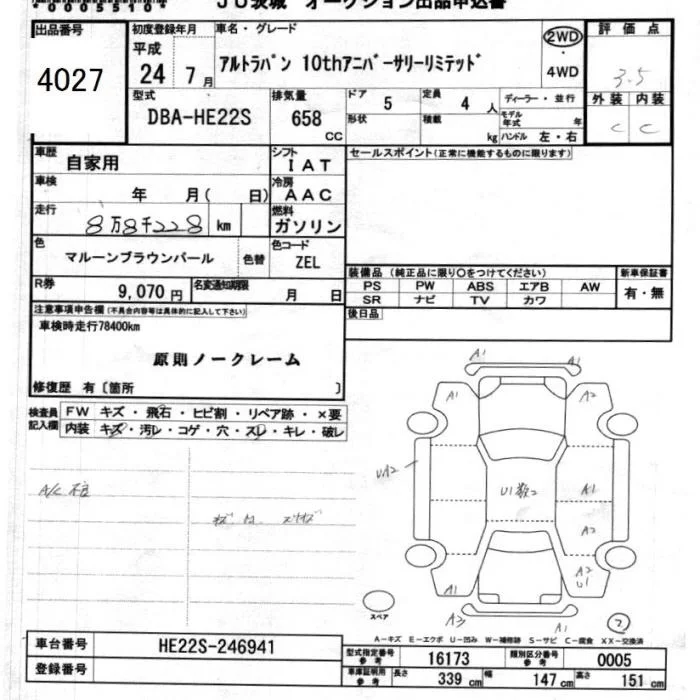 *0005510*
JU茨城 オークション出品申込書
出品番号
4027
初度登録年月 車名・グレード
平成
24 7月
アルトラパン 10thアニバーサリーリミテッド
2WD
・
4WD
評価点
3.5
外装 内装
C C
型式
DBA-HE22S
排気量
658 CC
ドア 5 定員 4 人
形状 積載 kg
ディーラー・並行
モデル年式 年
ハンドル 左・右
車歴 自家用
シフト IAT
車検 年 月( 日)
冷房 AAC
走行 8万8千228 km
燃料 ガソリン
色 マルーンブラウンパール 色替
色コード ZEL
R券 9,070円
名変通知期限 月 日
セールスポイント(正常に機能するものに限ります)
装備品(純正品に限り○をつけてください)
PS PW ABS エアB AW
SR ナビ TV カワ
新車保証書
有・無
後日品
注意事項申告欄(不具合内容等は具体的に記入して下さい)
車検時走行78400km
原則ノークレーム
修復歴 有〔箇所 〕
検査員記入欄
FW キズ・飛石・ヒビ割・リペア跡・×要
内装 キズ・汚レ・コゲ・穴・スレ・キレ・破レ
A1 A1
A1 A2
UA2
U1数2
A1
A2
A2
U1
A1
A3 A1
スペア
2
A-キズ E-エクボ U-凹み W-補修跡 S-サビ C-腐食 XX-交換済
車台番号 HE22S-246941
登録番号
型式指定番号 参考 16173
類別区分番号 参考 0005
車庫証明用 参考 長さ 339 cm 幅 147 cm 高さ 151 cm